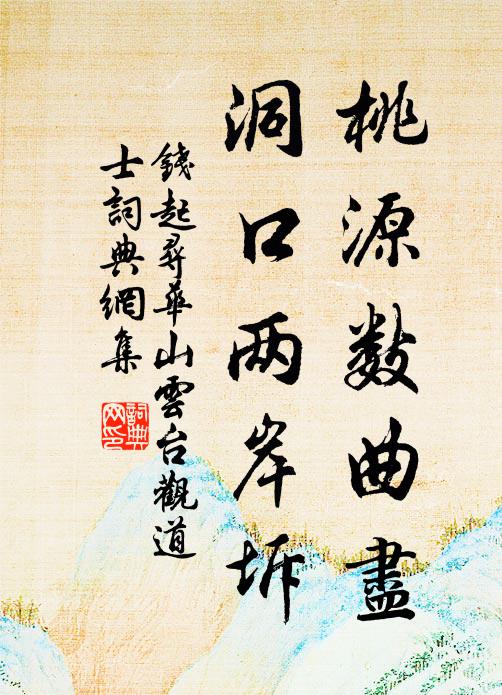 桃源数曲盡
洞口两岸坼
錢起尋華山雲台觀道
士詞典網集
詞典
网印